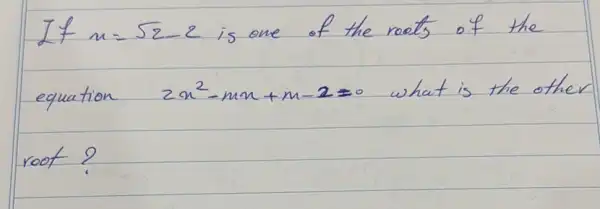 If x = √2-2 is one of the roots of the
equation 2x²-mx+m-2=0 what is the other
root ?